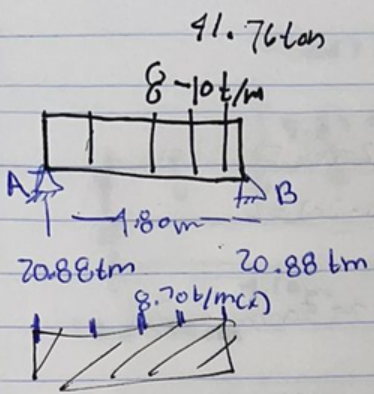 41.76ton
8-10t/m
A
B
4.80m
20.88tm
20.88 tm
8.70t/m(x)